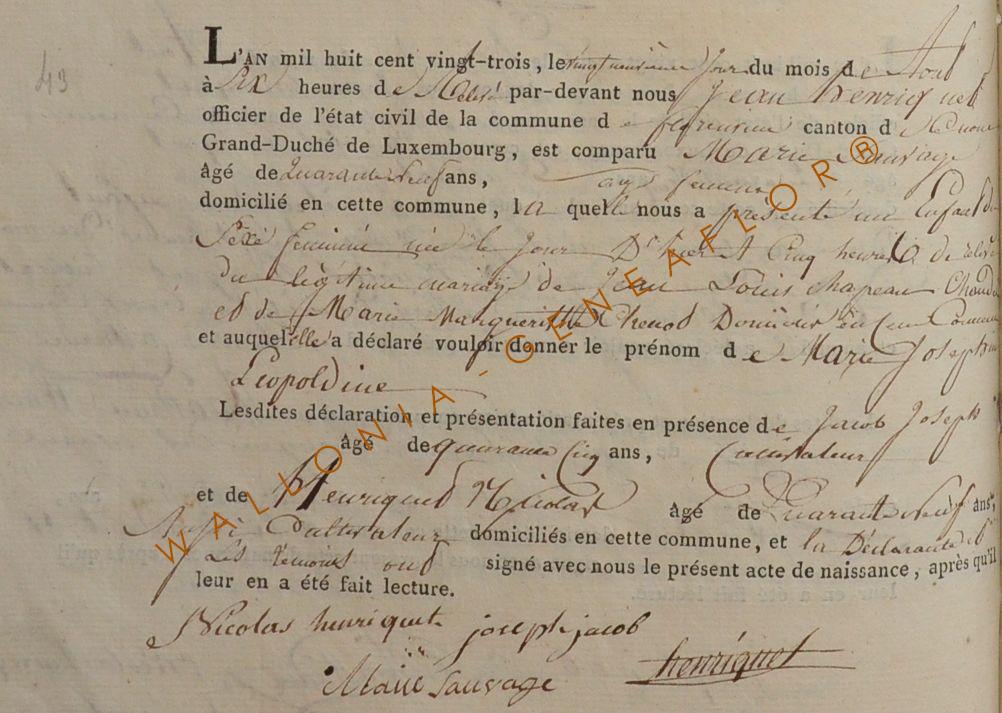 43
L'AN mil huit cent vingt-trois, le vingt neuvieme jour du mois de Aout
à Six heures de Relevé par-devant nous Jean henriquet
officier de l'état civil de la commune de florenville canton d
Grand-Duché de Luxembourg, est comparu Marie Sauvage
âgé de Quarante neuf ans,
domicilié en cette commune, la quelle nous a présenté un Enfant du
Sexe feminin née le jour D'hier A Cinq heures de relevé
du légitime mariage de Jean Louis chapeau
et de Marie Margueritte Chenot en
et auquel ille a déclaré vouloir donner le prénom de Marie Josephine
Leopoldine
Lesdites déclaration et présentation faites en présence de Jacob Joseph
âgé de quarante Cinq ans, Cultivateur
et de Henriquet Nicolas âgé de Quarante Neuf ans,
Aussi Cultivateur domiciliés en cette commune, et la Déclarante et
Les témoins ont signé avec nous le présent acte de naissance, après qu'il
leur en a été fait lecture.
Nicolas henriquet joseph jacob
Marie Sauvage henriquet
WALLONIA - GENEAFLOR®